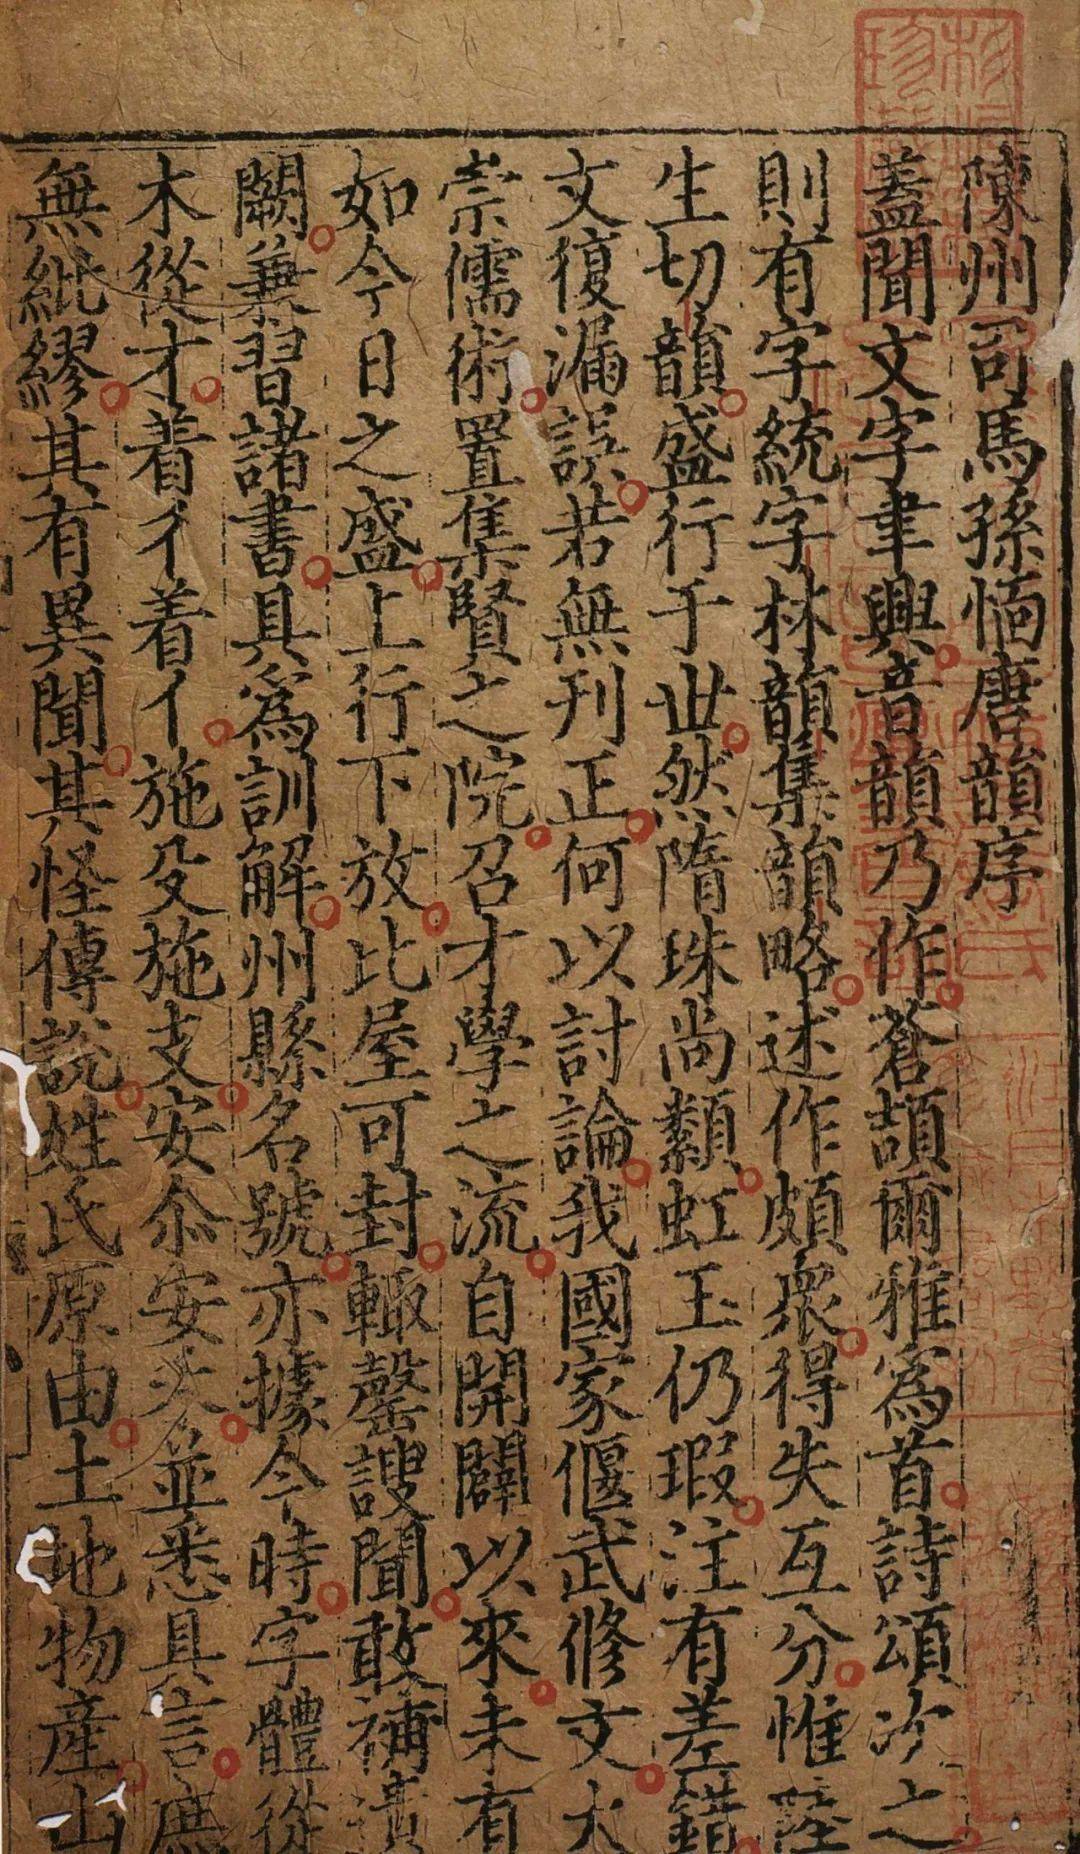 陳州司馬孫愐唐韻序
蓋聞文字聿興音韻乃作蒼頡爾雅爲首詩頌次之
則有字統字林韻集韻略述作頗衆得失互分惟陸
生切韻盛行于世然隋珠尚纇虹玉仍瑕注有差錯
文復漏誤若無刋正何以討論我國家偃武修文大
崇儒術置集賢之院召才學之流自開闢以來未有
如今日之盛上行下放比屋可封輙罄謏聞敢補遺
闕兼習諸書具爲訓解州縣名號亦據今時字體從
木從才着彳着亻施殳施攴安尒安禾並悉具言庶
無紕繆其有異聞其怪傳說姓氏原由土地物產山